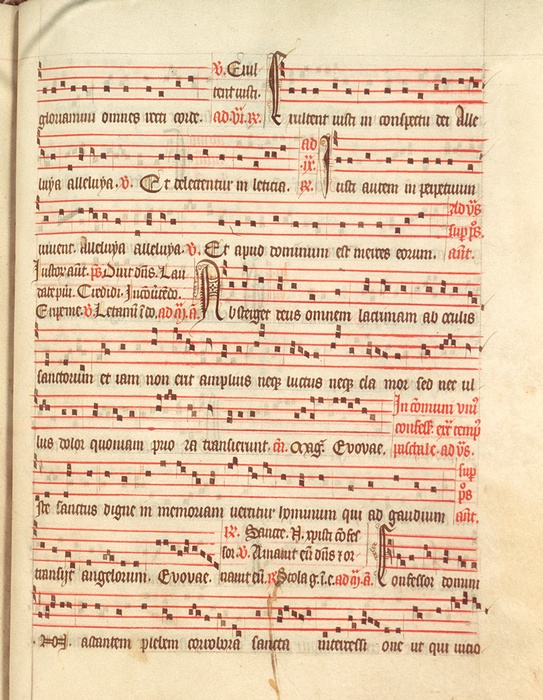 V. Exul
tent iusti.
gloriamini omnes recti corde. ad. vi. R. Exultent iusti in conspectu dei Alle
ad
.ix.
R.
luya alleluya. V. Et delectentur in leticia. Iusti autem in perpetuum
Ad vs
sup ps.
viuent. Alleluya alleluya. V. Et apud dominum est merces eorum. ant.
Iustor ant. ps. Dixit dns. Lau
date pueri. Credidi. In couertedo.
Eripe me. V. Letamini i do. ad m. a. Absterget deus omnem lacrimam ab oculis
sanctorum et iam non erit amplius neqz luctus neqz cla mor sed nec ul
In comuni vni
confess. ext temp
lus dolor quoniam prio ra transierunt. cn. Mag. Evovae. paschale. ad vs.
sup
ps
Iste sanctus digne in memoriam vertitur hominum qui ad gaudium ant.
R. Sancte. N. xpisti cofes
sor. V. Amauit eu dns 7 or
transijt angelorum. Evovae. nauit eu. R. Stola g. i. e. ad m. a. Confessor domini
.N. astantem plebem corrobora sancta intercessi one ut qui uitio